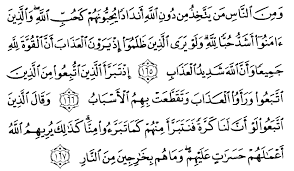 وَمِنَ النَّاسِ مَن يَتَّخِذُ مِن دُونِ اللَّهِ أَندَادًا يُحِبُّونَهُمْ كَحُبِّ اللَّهِ وَالَّذِينَ
ءَامَنُوا أَشَدُّ حُبًّا لِّلَّهِ وَلَوْ يَرَى الَّذِينَ ظَلَمُوا إِذْ يَرَوْنَ الْعَذَابَ أَنَّ الْقُوَّةَ لِلَّهِ
جَمِيعًا وَأَنَّ اللَّهَ شَدِيدُ الْعَذَابِ ١٦٥ إِذْ تَبَرَّأَ الَّذِينَ اتُّبِعُوا مِنَ الَّذِينَ
اتَّبَعُوا وَرَأَوُا الْعَذَابَ وَتَقَطَّعَتْ بِهِمُ الْأَسْبَابُ ١٦٦ وَقَالَ الَّذِينَ
اتَّبَعُوا لَوْ أَنَّ لَنَا كَرَّةً فَنَتَبَرَّأَ مِنْهُمْ كَمَا تَبَرَّءُوا مِنَّا كَذَٰلِكَ يُرِيهِمُ اللَّهُ
أَعْمَالَهُمْ حَسَرَاتٍ عَلَيْهِمْ وَمَا هُم بِخَارِجِينَ مِنَ النَّارِ ١٦٧